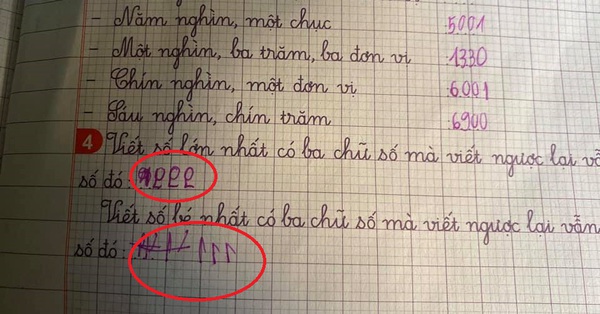 - Năm nghìn, một chục 5001
- Một nghìn, ba trăm, ba đơn vị 1330
- Chín nghìn, một đơn vị 6001
- Sáu nghìn, chín trăm 6900
4 Viết số lớn nhất có ba chữ số mà viết ngược lại vẫ
số đó: 999
Viết số bé nhất có ba chữ số mà viết ngược lại vẫn
số đó: 111